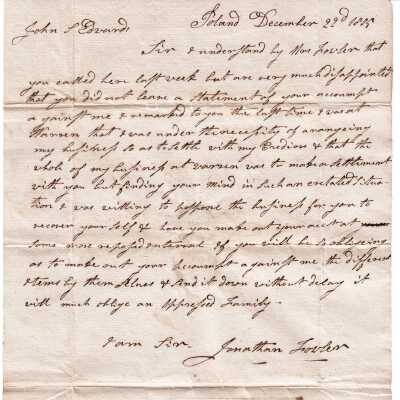 John S Edwards
Poland December 22d 1805
Sir I understand by Mrs Fowler that
you called here last week but are very much disappointed
that you did not leave a Statement of your accounts
against me I remarked to you the last time I was at
Warren that I was under the necessity of arangeing
my business so as to settle with my Creditors & that the
whole of my business at warren was to make a settlement
with you but finding your mind in such an situa
tion I was willing to postpone the business for you to
recover your self & have you make out your acct at
some more reposed interval & if you will be so obligeing
as to make out your account against me the different
items by them selves & send it down without delay it
will much oblige an oppressed Family.
I am Sir
Jonathan Fowler